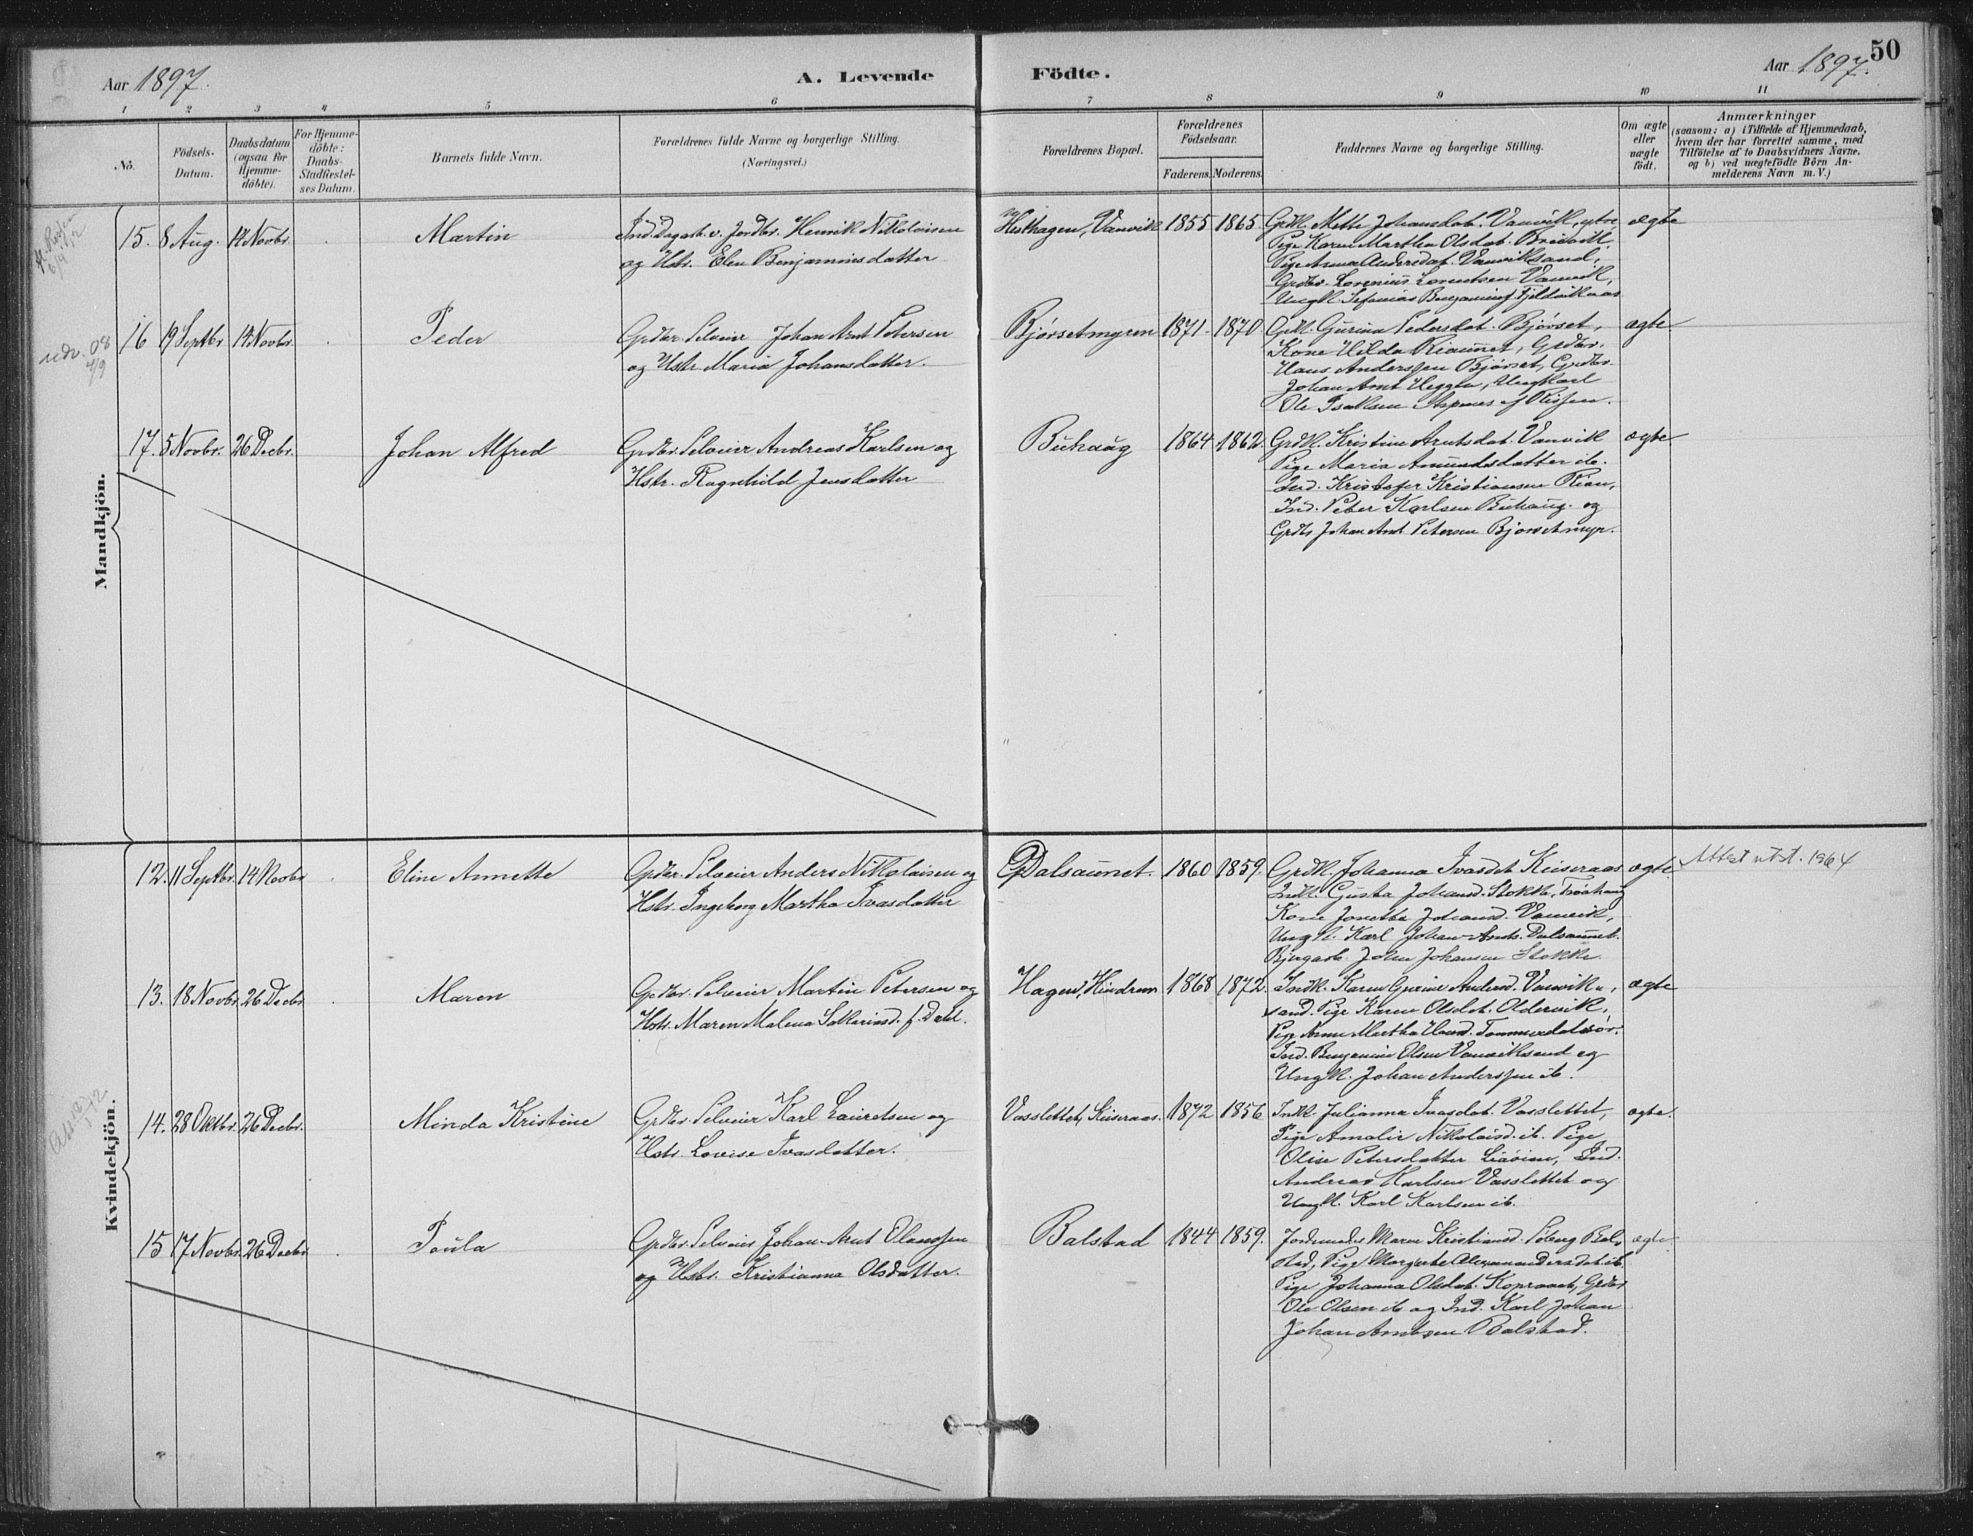 50
Aar 1897.
A. Levende
Födte.
Aar 1897.
1 2 3 4 5 6 7 8 9 10 11
No.
Födsels-
Datum.
Daabsdatum
(ogsaa for
Hjemme-
döbte).
For Hjemme-
döbte:
Daabs-
Stadfæstel-
ses Datum.
Barnets fulde Navn.
Forældrenes fulde Navne og borgerlige Stilling.
(Næringsvei.)
Forældrenes Bopæl.
Forældrenes
Födselsaar.
Faderens. Moderens.
Faddernes Navne og borgerlige Stilling.
Om ægte
eller
uægte
født.
Anmærkninger
(saasom: a) i Tilfælde af Hjemmedaab,
hvem der har forrettet samme, med
Tilföielse af to Daabsvidners Navne,
og b) ved uægtefödte Börn An-
melderens Navn m. V.)
Mandkjön.
15. 8 Aug. 14 Novbr. Martin
Ind. Dagarb. v. Jordbr. Henrik Nikolaisen
og Hstr. Elen Benjaminsdatter
Hesthagen, Vanvik 1855 1865
Grdk. Mette Johansdat. Vanvik, ytre,
Pige Karen Martha Olsdat. Breivik,
Pige Anna Andersdat. Vanviksand,
Grdbr. Lorenius Lorentsen Vanvik,
Ungk. Sefanias Benjaminsf. Fjeldvikaas
ægte
udv. 08
7/9
16 19 Septbr 14 Novbr. Peder
Grdbr. Selveier Johan Arnt Petersen
og Hstr. Maria Johansdatter.
Bjørsetmyren 1871 1870
Grdk. Gurina Pedersdat. Bjørset,
Kone Hilda Riaunet, Grdbr.
Hans Anderssen Bjørset, Grdbr.
Johan Arnt Heggli, Ungkarl
Ole Isaksen Aspnes af Rissen.
ægte
17. 5 Novbr. 26 Decbr. Johan Alfred
Grdbr. Selveier Andreas Karlsen og
Hstr. Ragnhild Jensdatter
Buhaug 1864 1862
Grdk. Kristine Arntsdat. Vanvik
Pige Maria Amundsdatter ib.
Ind. Kristofer Kristiansen Rian,
Ind. Peter Karlsen Buhaug og
Grdbr Johan Arnt Petersen Bjørsetmyr.
ægte
Kvindekjön.
12. 11 Septbr. 14 Novbr Eline Annette
Grdbr. Selveier Anders Nikolaisen og
Hstr. Ingeborg Martha Ivarsdatter
Dalsaunet 1860 1859.
Grdk. Johanna Ivarsdat. Keiseraas
Indk. Gusta Johansd. Stokke,
Kone Jonetta Johansd. Vanvik,
Ungk. Karl Johan Arnts. Dalsaunet
John Johansen Stokke.
ægte
Attest utst. 1964
13. 18 Novbr. 26 Decbr Maren
Grdbr. Selveier Martin Petersen og
Hstr. Maren Malena Sakariasd. f. Dahl.
Hagen, Hindrem 1868 1872.
Indk. Karen Gurine Andersd. Vanvik-
sand. Pige Karen Olsdat. Oldervik,
Pige Anne Martha Hansd. Tømmerdalsør.
Ind. Benjamin Olsen Vanviksand og
Ungk. Johan Anderssen ib.
ægte
14. 28 Oktbr. 26 Decbr. Minda Kristine
Grdbr. Selveier Karl Lauretsen og
Hstr. Lovise Ivarsdatter.
Vasslettet, Keiseraas. 1872 1856
Indk. Julianna Ivarsdat. Vasslettet,
Pige Amalie Nikolaisd. ib. Pige
Oline Petersdatter Liaøien, Ind.
Andreas Karlsen Vasslettet og
Ungk. Karl Karlsen ib.
ægte.
15 17 Novbr. 26 Decbr Paula
Grdbr. Selveier Johan Arnt Olaussen
og Hstr. Kristianna Olsdatter.
Balstad 1844 1859.
Jordemoder Maren Kristiansd. Søberg Bal-
stad, Pige Margrete Alexandersdat ib.
Pige Johanna Olsdat. Kopraaet, Grdbr
Ole Olsen ib og Ind. Karl Johan
Johan Arntsen Balstad.
ægte